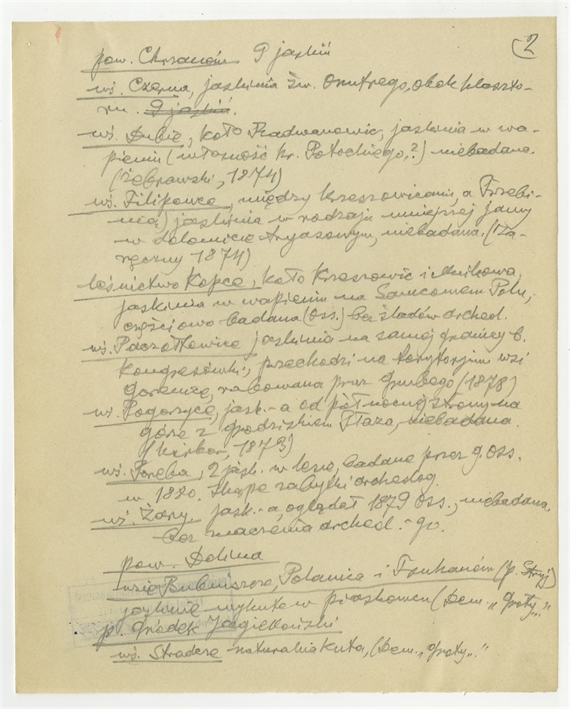 2
pow. Chrzanów 9 jaskiń
wś. Czerna, jaskinia św. Onufrego, obok klaszto-
ru. 9 jaskiń.
wś. Dubie, koło Radwanowic, jaskinia w wa-
pieniu (własność hr. Potockiego,?) niebadana.
(Żebrawski, 1874)
wś. Filipowce, między Krzeszowicami, a Trzebi-
nią) jaskinia w rodzaju mniejszej jamy
w dolomicie tryasowym, niebadana. (Za-
ręczny 1874)
leśnictwo Kopce, koło Krzeszowic i Mnikowa,
jaskinia w wapieniu na Samcowem Polu,
częściowo badana (Oss.) bez śladów archeol.
wś. Paczołtowice jaskinia na samej granicy b.
Kongresówki, przechodzi na terytoryjum wsi
Gorenice, rabowana przez Grubego (1878)
wś. Pogorzyce, jask.-a od północnej strony na
górze z grodziskiem Płaza, niebadana.
(Kirkor, 1873)
wś. Poręba, 2 jask. w lesie, badane przez G. Oss.
w 1880. Skąpe zabytki archeolog.
wś. Żary. jask.-a, oglądał 1879 Oss., niebadana.
Bez znaczenia archeol.-go.
pow. Dolina
wsie Bubniszcze, Polanica i Truchanów (p. Stryj)
jaskinie wykute w piaskowcu (Dem. „Groty”."
p. Gródek Jagielloński
wś. Stradcze naturalna kuta, (Dem. „Groty”."